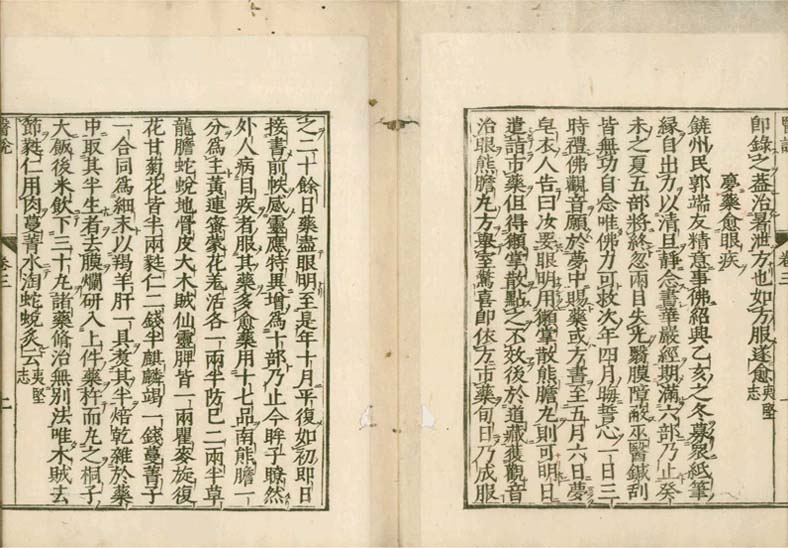 醫說
卷三
即錄之蓋治暑泄方也如方服遂愈夷堅志
夢藥愈眼疾
饒州民郭端友精意事佛紹興乙亥之冬募眾紙筆
緣自出力以清旦靜念書華嚴經期滿六部乃止癸
未之夏五部將終忽兩目失光翳膜障蔽巫醫鍼刮
皆無功自念唯佛力可救次年四月晦誓心一日三
時禮佛觀音願於夢中賜藥或方書至五月六日夢
皂衣人告曰汝要眼明用獺掌散熊膽丸則可明日
遣詣市藥但得獺掌散點之不效後於道藏獲觀音
治眼熊膽丸方舉室驚喜即依方市藥旬日乃成服
之二十餘日藥盡眼明至是年十月平復如初即日
接書前帙感靈應特異增為十部乃止今眸子瞭然
外人病目疾者服其藥多愈藥用十七品南熊膽一
分為主黃連蜜蒙花羌活各一兩半防己二兩半草
龍膽蛇蛻地骨皮大木賊仙靈脾皆一兩瞿麥旋復
花甘菊花皆半兩蕤仁二錢半麒麟竭一錢蔓菁子
一合同為細末以羯羊肝一具煑其半焙乾雜於藥
中取其半生者去膜爛研入上件藥杵而丸之桐子
大飯後米飲下三十丸諸藥修治無別法唯木賊去
節蕤仁用肉蔓菁水淘蛇蛻炙云夷堅志
醫說
卷三